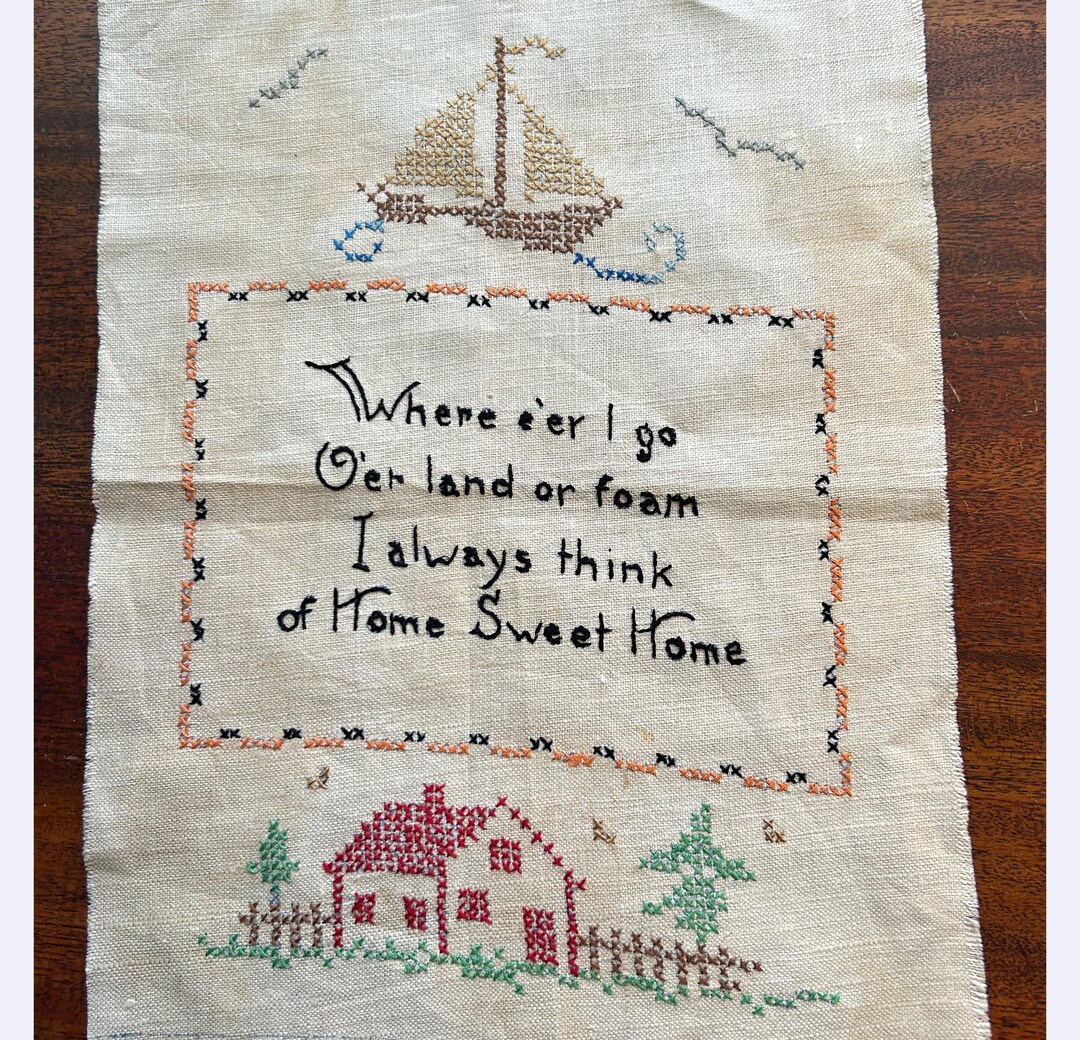 Where e'er I go
O'er land or foam
I always think
of Home Sweet Home